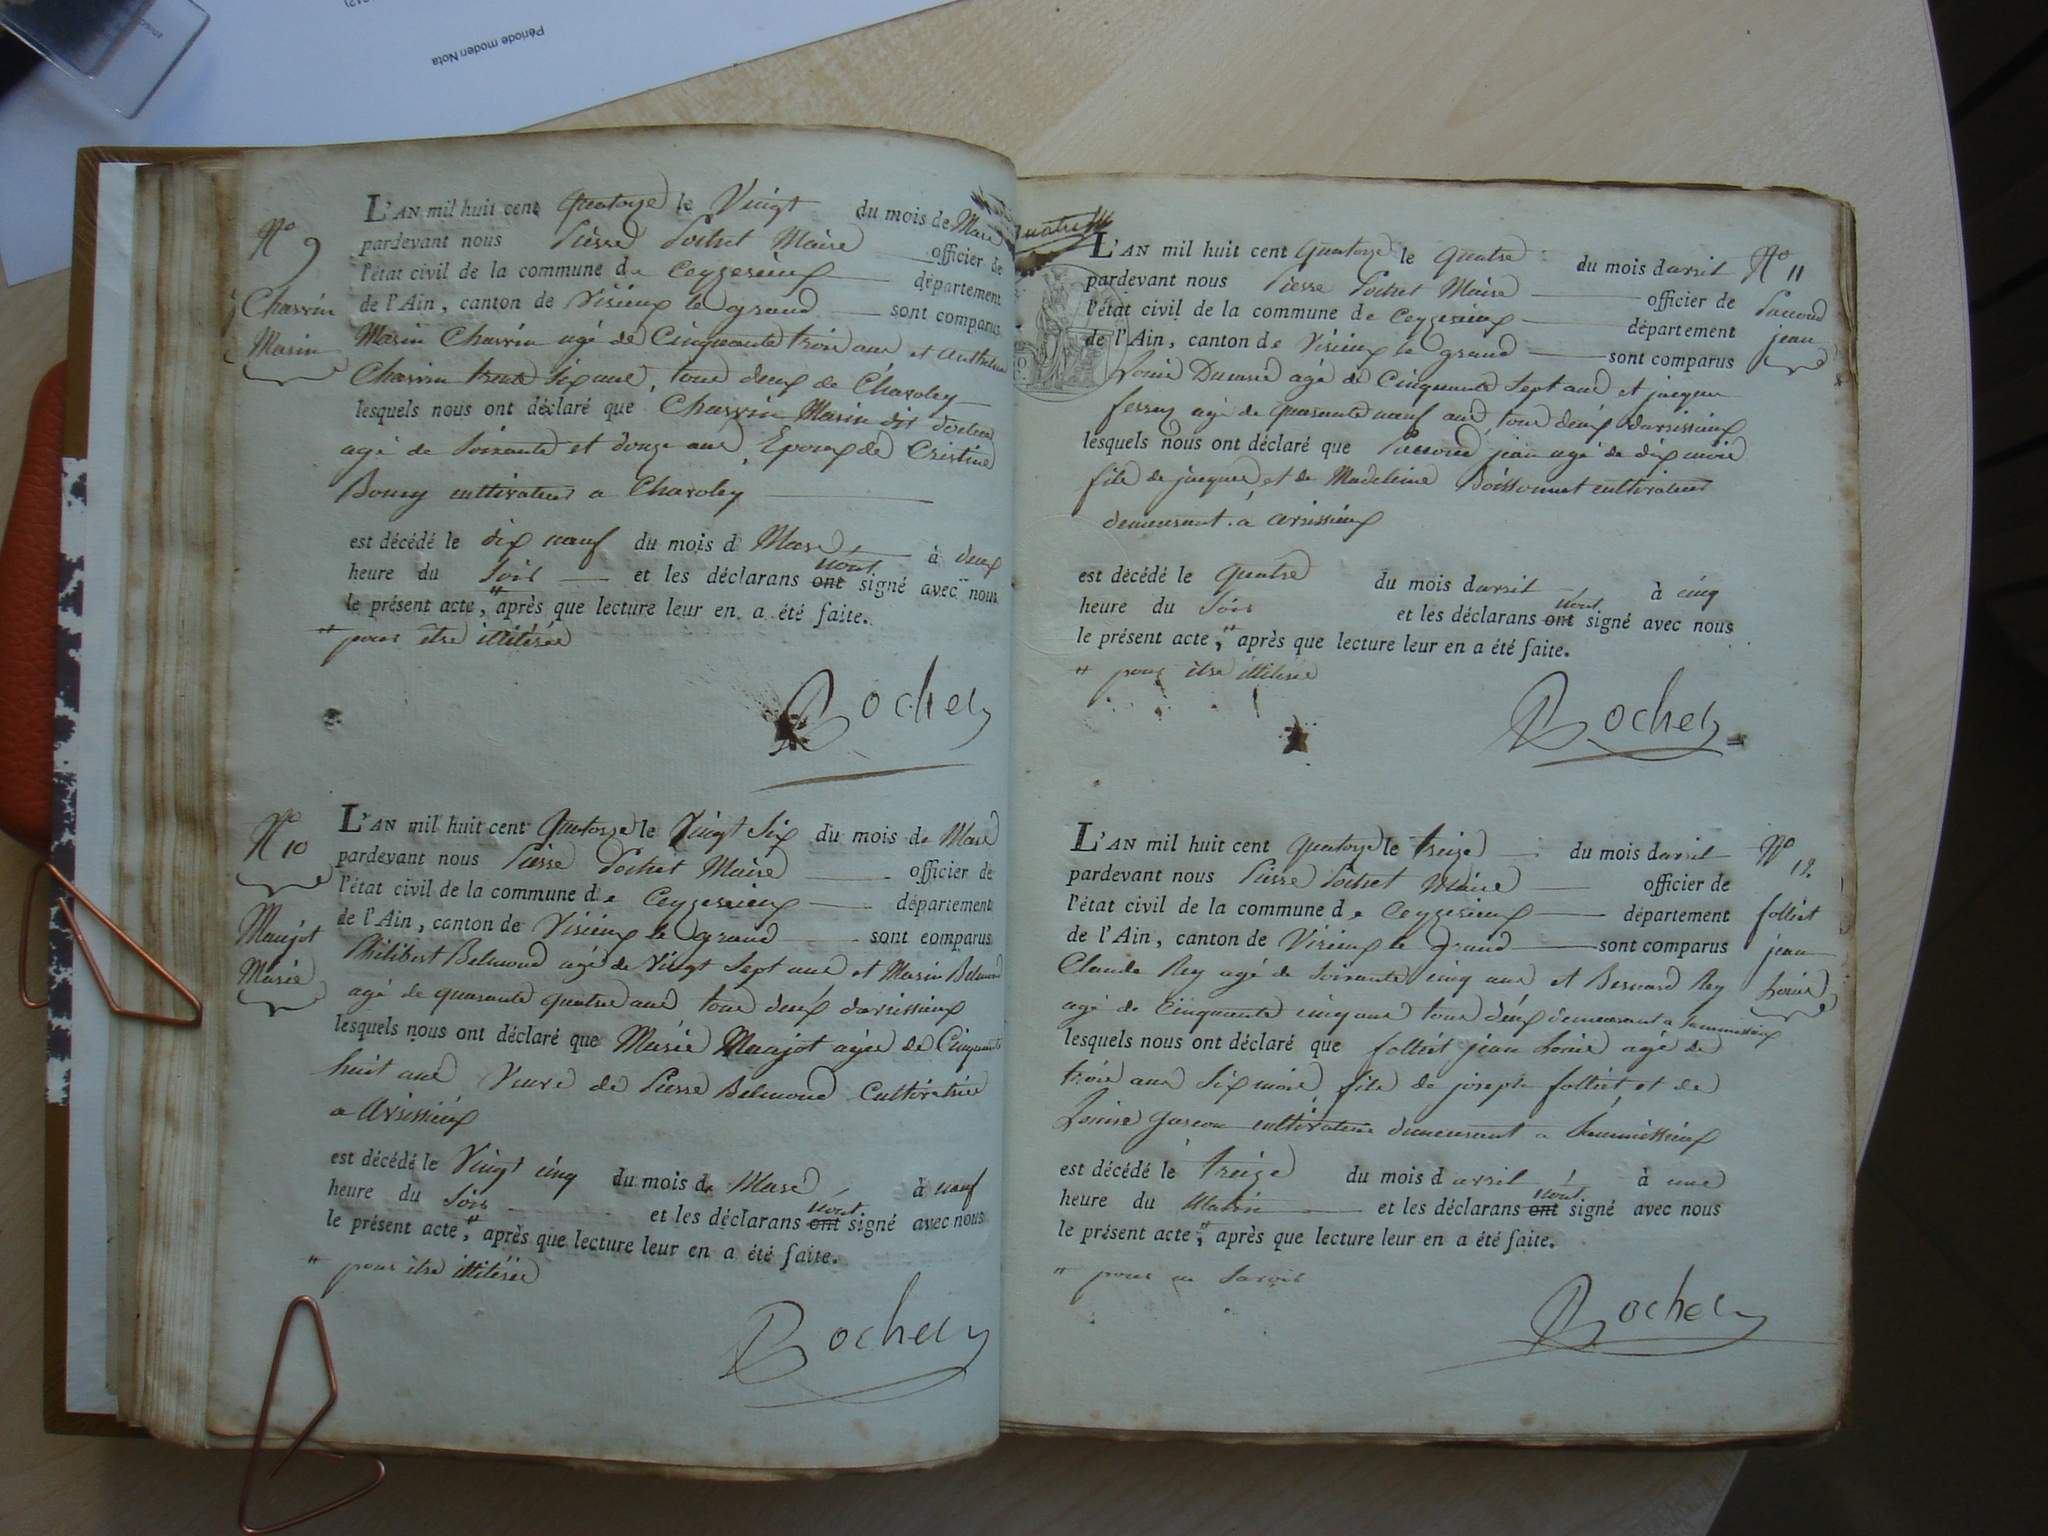 Période moden Nota
N° 9
Charvin
Marin
L'AN mil huit cent quatorze le Vingt du mois de Mars
pardevant nous Pierre Pochet Maire officier de
l'état civil de la commune de Ceyzerieux département
de l'Ain, canton de Virieux le grand sont comparus
Marin Charvin agé de Cinquante trois ans et Anthelme
Charvin trente six ans, tous deux de Charoley
lesquels nous ont déclaré que Charvin Marin dit
agé de soixante et douze ans, Epoux de Cristine
Bouvy cultivateur a Charoley
est décédé le dix neuf du mois d Mars à deux
nont
heure du soir et les déclarans ont signé avec nous
le présent acte, " après que lecture leur en a été faite.
" pour être illitérés
Rochet
N° 10
Maujot
Marie
L'AN mil huit cent Quatorze le Vingt Six du mois de Mars
pardevant nous Pierre Pochet Maire officier de
l'état civil de la commune de Ceyzerieux département
de l'Ain, canton de Virieux le grand sont comparus
Philibert Belmond agé de Vingt Sept ans et Marin Belmond
agé de quarante quatre ans tous deux davrissieux
lesquels nous ont déclaré que Marie Maujot agée de Cinquante
huit ans Veuve de Pierre Belmond Cultivatrice
a Avrissieux
est décédé le Vingt cinq du mois de Mars à neuf
nont
heure du soir et les déclarans ont signé avec nous
le présent acte, " après que lecture leur en a été faite.
" pour être illitérés
Rochet
quatre
N° 11
Passond
jean
L'AN mil huit cent Quatorze le quatre du mois davril
pardevant nous Pierre Pochet Maire officier de
l'état civil de la commune de Ceyzerieux département
de l'Ain, canton de Virieux le grand sont comparus
Louis Dumas agé de Cinquante Sept ans et jacques
ferray agé de quarante neuf ans, tous deux davrissieux
lesquels nous ont déclaré que jean agé de dix mois
fils de jacques et de Madeleine Boissonnet cultivateurs
demeurant a avrissieux
est décédé le quatre du mois davril à cinq
nont
heure du Soir et les déclarans ont signé avec nous
le présent acte, " après que lecture leur en a été faite.
" pour être illitérés
Rochet
N° 12
folliet
jean
Louis
L'AN mil huit cent quatorze le treize du mois davril
pardevant nous Pierre Pochet Maire officier de
l'état civil de la commune de Ceyzerieux département
de l'Ain, canton de Virieux le grand sont comparus
Claude Rey agé de Soixante cinq ans et Bernard Rey
agé de Cinquante cinq ans tous deux demeurant a
lesquels nous ont déclaré que folliet jean Louis agé de
trois ans Six mois, fils de joseph folliet et de
Louise cultivateurs demeurant a
est décédé le treize du mois d avril à une
nont
heure du Matin et les déclarans ont signé avec nous
le présent acte, " après que lecture leur en a été faite.
" pour ne Savoir
Rochet